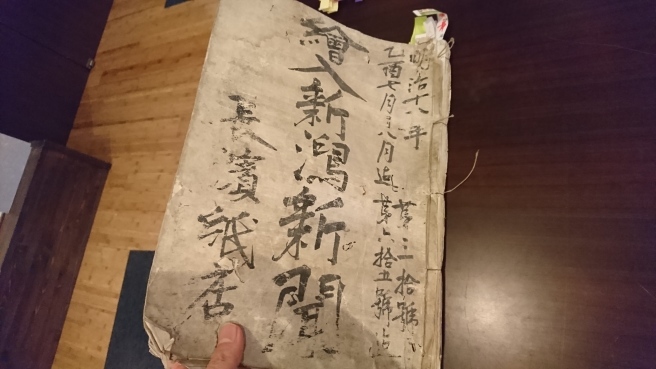 明治十八年　第三拾號ゟ
乙酉七月ヨリ八月迠　第六拾五號迠
繪入新潟新聞
長濱紙店